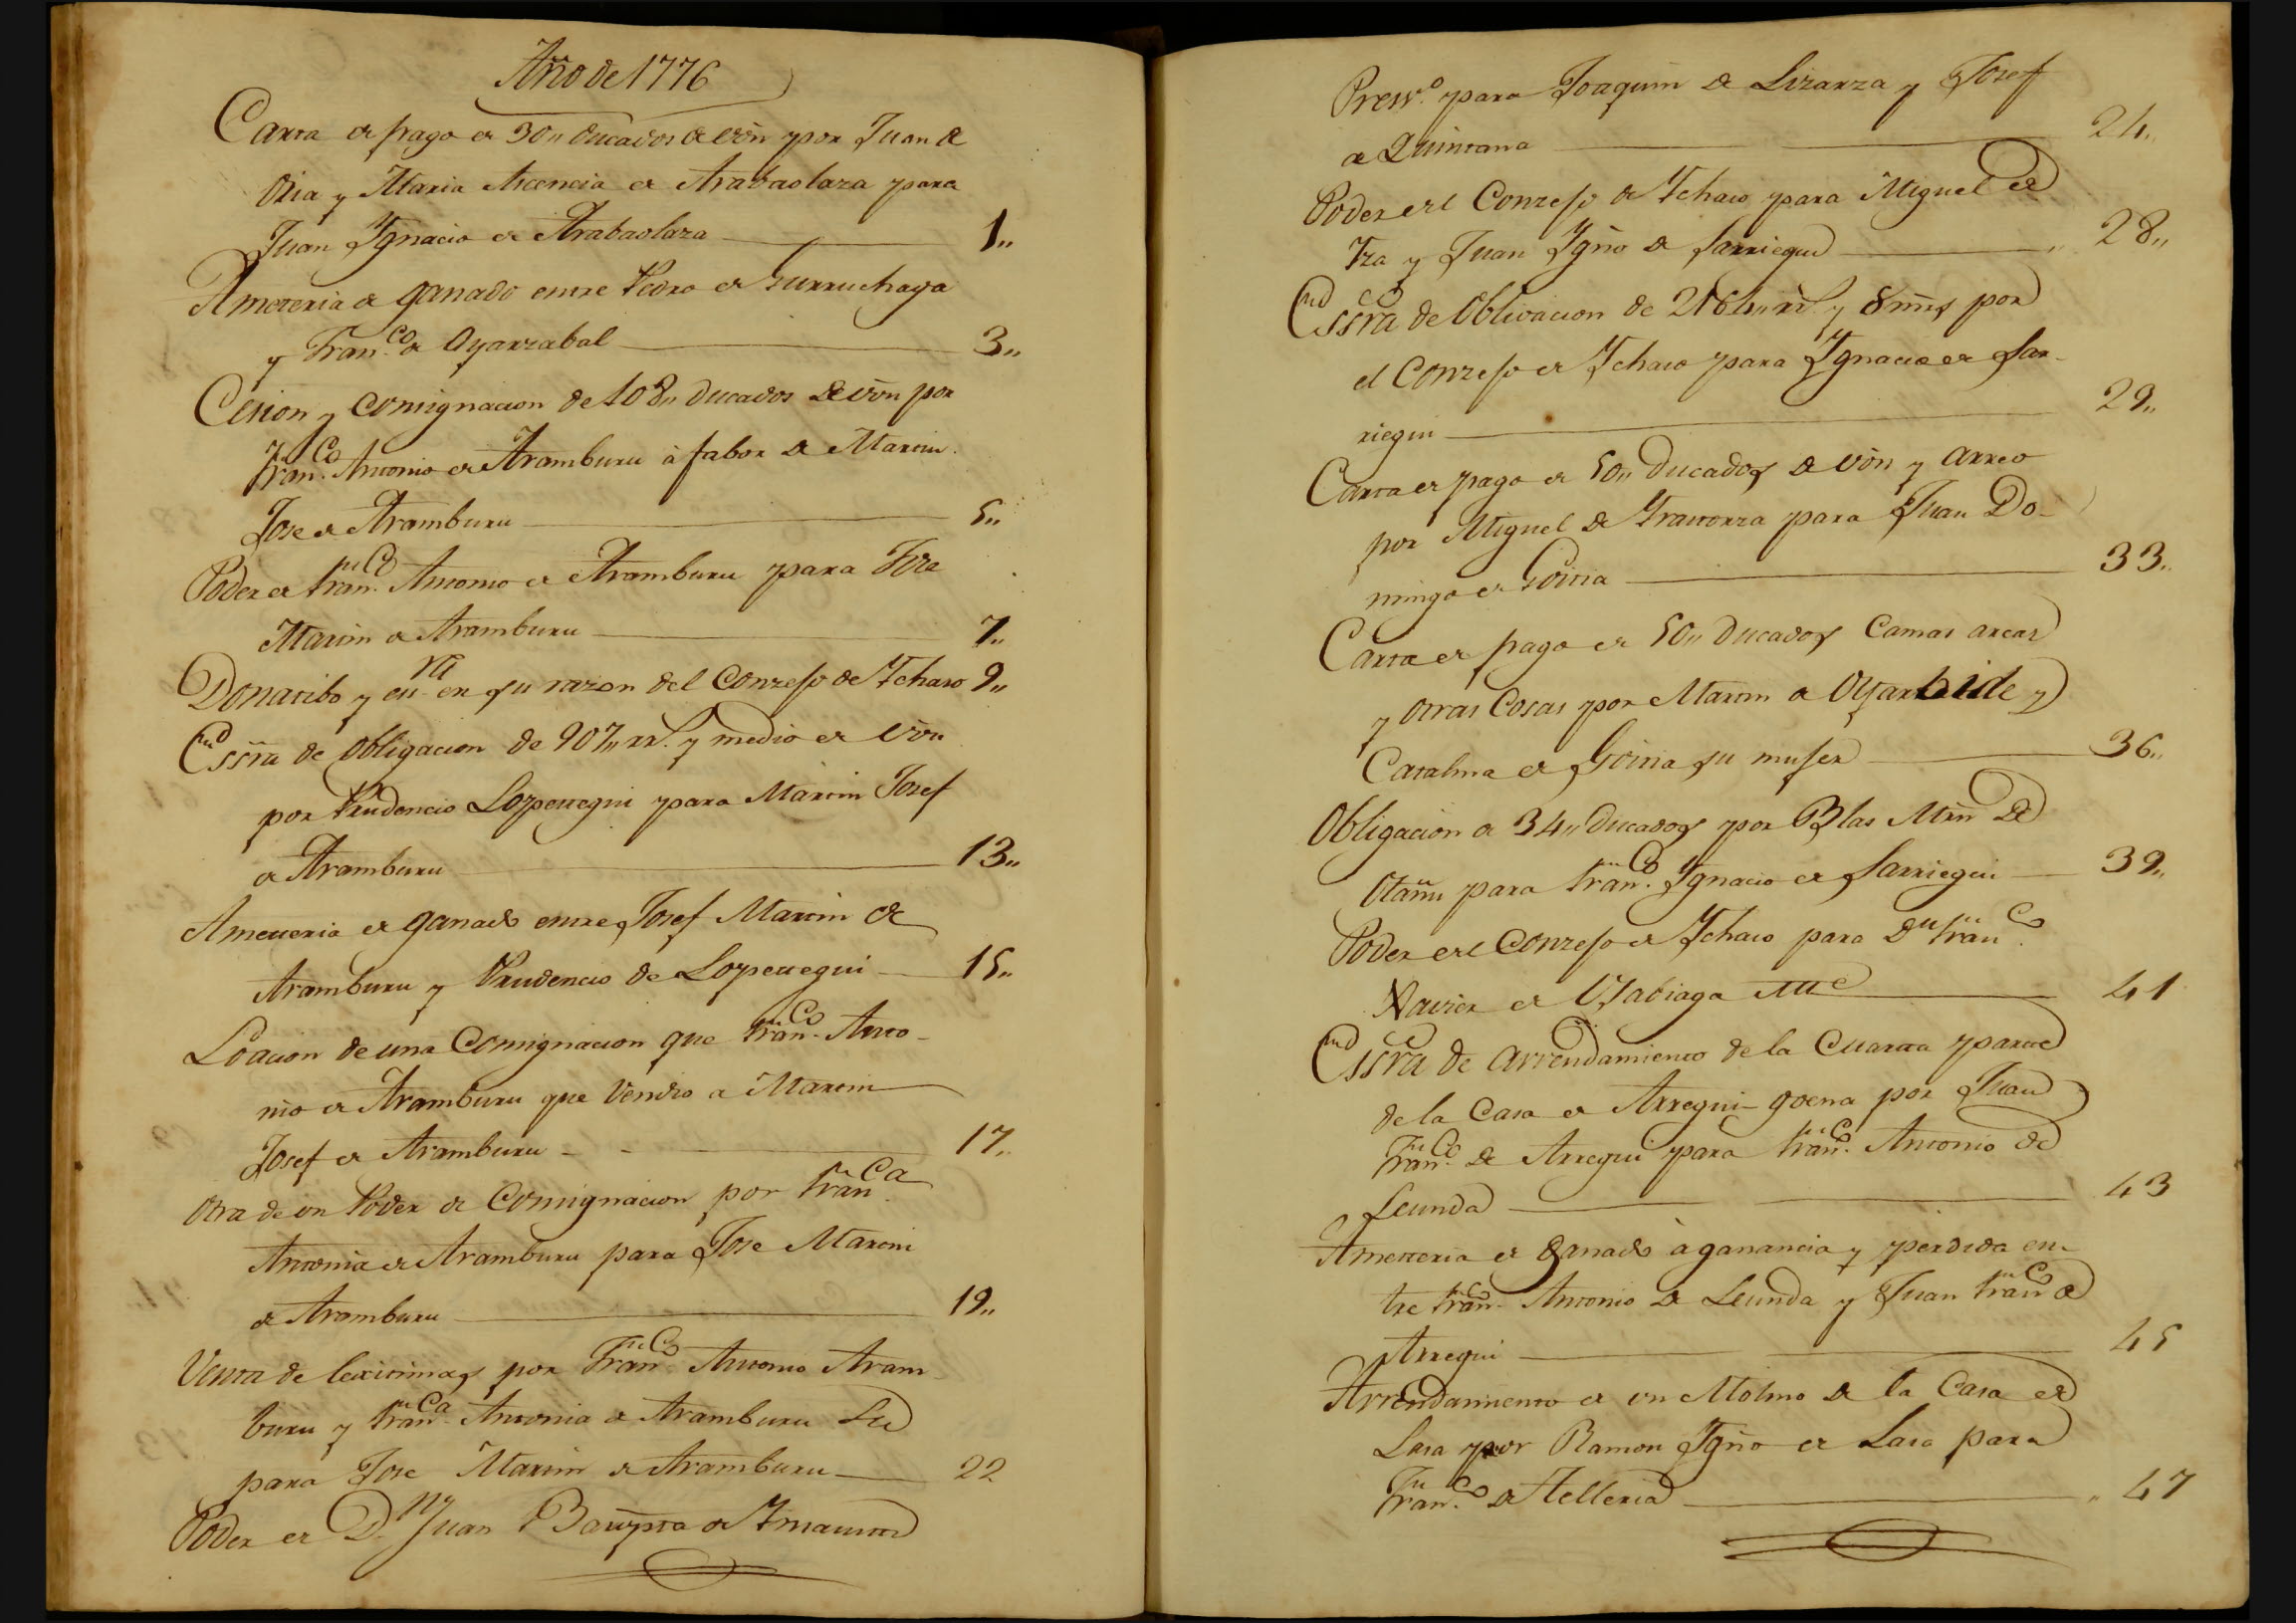 Año de 1776
Carta de pago de 30,, ducados de vòn por Juan de
Oria y Maria Ascencia de Arabaolaza para
Juan Ygnacio de Arabaolaza 1,,
Ameteria de ganado entre Pedro de Gurruchaga
y Fran.co de Oyarzabal 3,,
Cesion y consignacion de 108,, ducados de vòn por
Fran.co Antonio de Aramburu à fabor de Martin
Jose de Aramburu 5,,
Poder de Fran.co Antonio de Aramburu para Jose
Martin de Aramburu 7,,
Donatibo y en su razon del Conzejo de Ychaso 9,,
Essra de obligacion de 907,, rr.s y medio de vòn
por Prudencio Lopetegui para Martin Josef
de Aramburu 13,,
Ametteria de ganado entre Josef Martin de
Aramburu y Prudencio de Lopetegui 15,,
Loacion de una Consignacion que Fran.co Anto-
nio de Aramburu que Vendio a Martin
Josef de Aramburu 17,,
Otra de un Poder de Consignacion por Fran.ca
Antonia de Aramburu para Jose Martin
de Aramburu 19,,
Venta de lexitimas por Fran.co Antonio Aram-
buru y Fran.ca Antonia de Aramburu
para Jose Martin de Aramburu 22
Poder de D.n Juan Bauptta de
Presv.o para Joaquin de Lizarza y Josef
de Quintana 24,,
Poder del Conzejo de Ychaso para Miguel de
Yza y Juan Ygño de Sarriegui 28,,
Essra de Oblivacion de 2164,, rr.s y 8 mrs por
el Conzejo de Ychaso para Ygnacio de Sar-
riegui 29,,
Carta de pago de 50,, Ducados de vòn y arreo
por Miguel de Yrastorza para Juan Do-
mingo de Goitia 33,,
Carta de pago de 50,, Ducados Camas arcas
y otras Cosas por Martin de Oyarbide y
Catalina de Goitia su mujer 36,,
Obligacion de 34,, Ducados por Blas Mrñ de
Otañu para Fran.co Ygnacio de Sarriegui 39,,
Poder del Conzejo de Ychaso para D.n Fran.co
Xavier de Olabiaga 41
Essra de arrendamiento de la Cuarta parte
de la Casa de Arregui-goena por Juan
Fran.co de Arregui para Fran.co Antonio de
Leunda 43
Ametteria de Ganado à ganancia y perdida en-
tre Fran.co Antonio de Leunda y Juan Fran.co de
Arregui 45
Arrendamiento de un Molino de la Casa de
Lasa por Ramon Ygño de Lasa para
Fran.co de Telleria 47